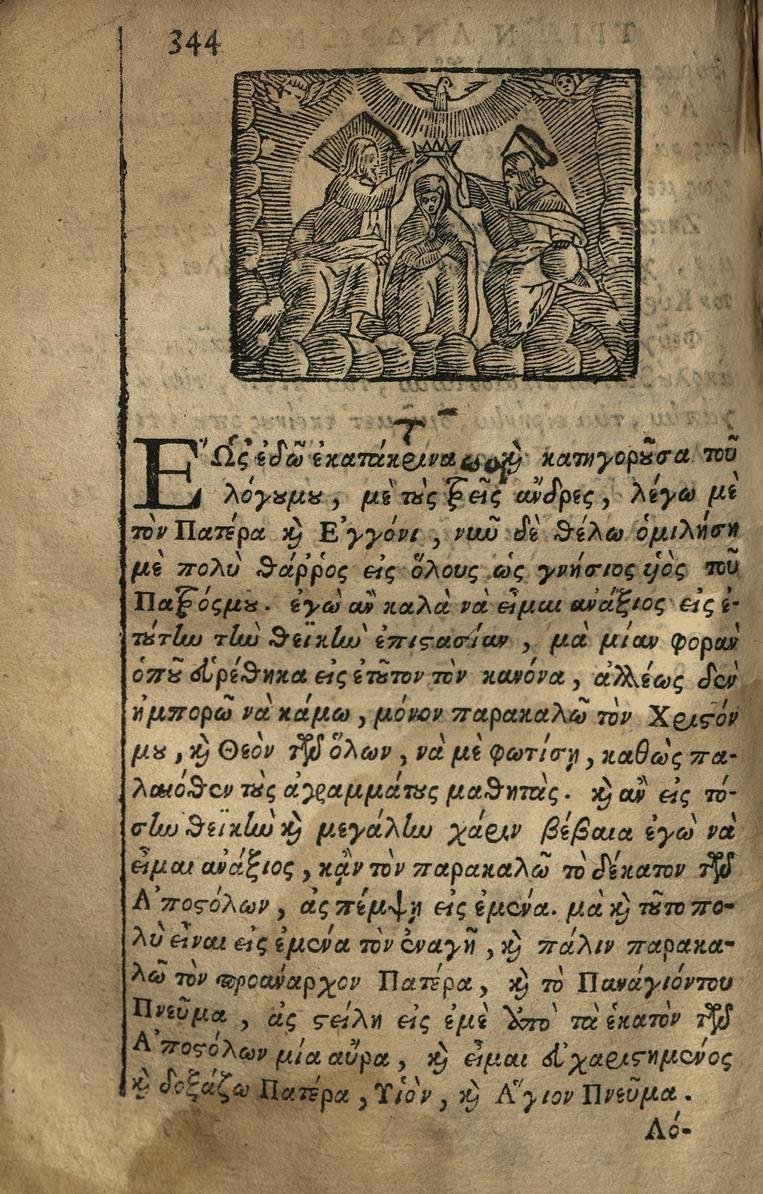 344
ἝΩς ἐδῶ ἐκατάκρινα καὶ κατηγοροῦσα τοῦ
λόγουμου, μὲ τοὺς τρεῖς ἄνδρες, λέγω μὲ
τὸν Πατέρα καὶ Ἐγγόνι, νῦν δὲ θέλω ὁμιλήση
μὲ πολὺ θάῤῥος εἰς ὅλους ὡς γνήσιος ὑὸς τοῦ
Πατρόςμου. ἐγὼ ἂν καλὰ νὰ εἶμαι ἀνάξιος εἰς ἐ-
τούτην τὴν θεϊκὴν ἐπιστασίαν, μὰ μίαν φορὰν
ὁποῦ εὑρέθηκα εἰς ἐτοῦτον τὸν κανόνα, ἀλλέως δὲν
ἠμπορῶ νὰ κάμω, μόνον παρακαλῶ τὸν Χριστόν
μου, καὶ Θεὸν τῶν ὅλων, νὰ μὲ φωτίσῃ, καθὼς πα-
λαιόθεν τοὺς ἀγραμμάτους μαθητάς. καὶ ἂν εἰς τό-
σην θεϊκὴν καὶ μεγάλην χάριν βέβαια ἐγὼ νὰ
εἶμαι ἀνάξιος, κᾂν τὸν παρακαλῶ τὸ δέκατον τῶν
Ἀποστόλων, ἂς πέμψῃ εἰς ἐμένα. μὰ καὶ τοῦτο πο-
λὺ εἶναι εἰς ἐμένα τὸν ἐναγῆ, καὶ πάλιν παρακα-
λῶ τὸν προάναρχον Πατέρα, καὶ τὸ Πανάγιόντου
Πνεῦμα, ἂς στείλη εἰς ἐμὲ ἀπὸ τὰ ἑκατὸν τῶν
Ἀποστόλων μία αὖρα, καὶ εἶμαι εὐχαριστημένος
καὶ δοξάζω Πατέρα, Υἱὸν, καὶ Ἅγιον Πνεῦμα.
Λό-